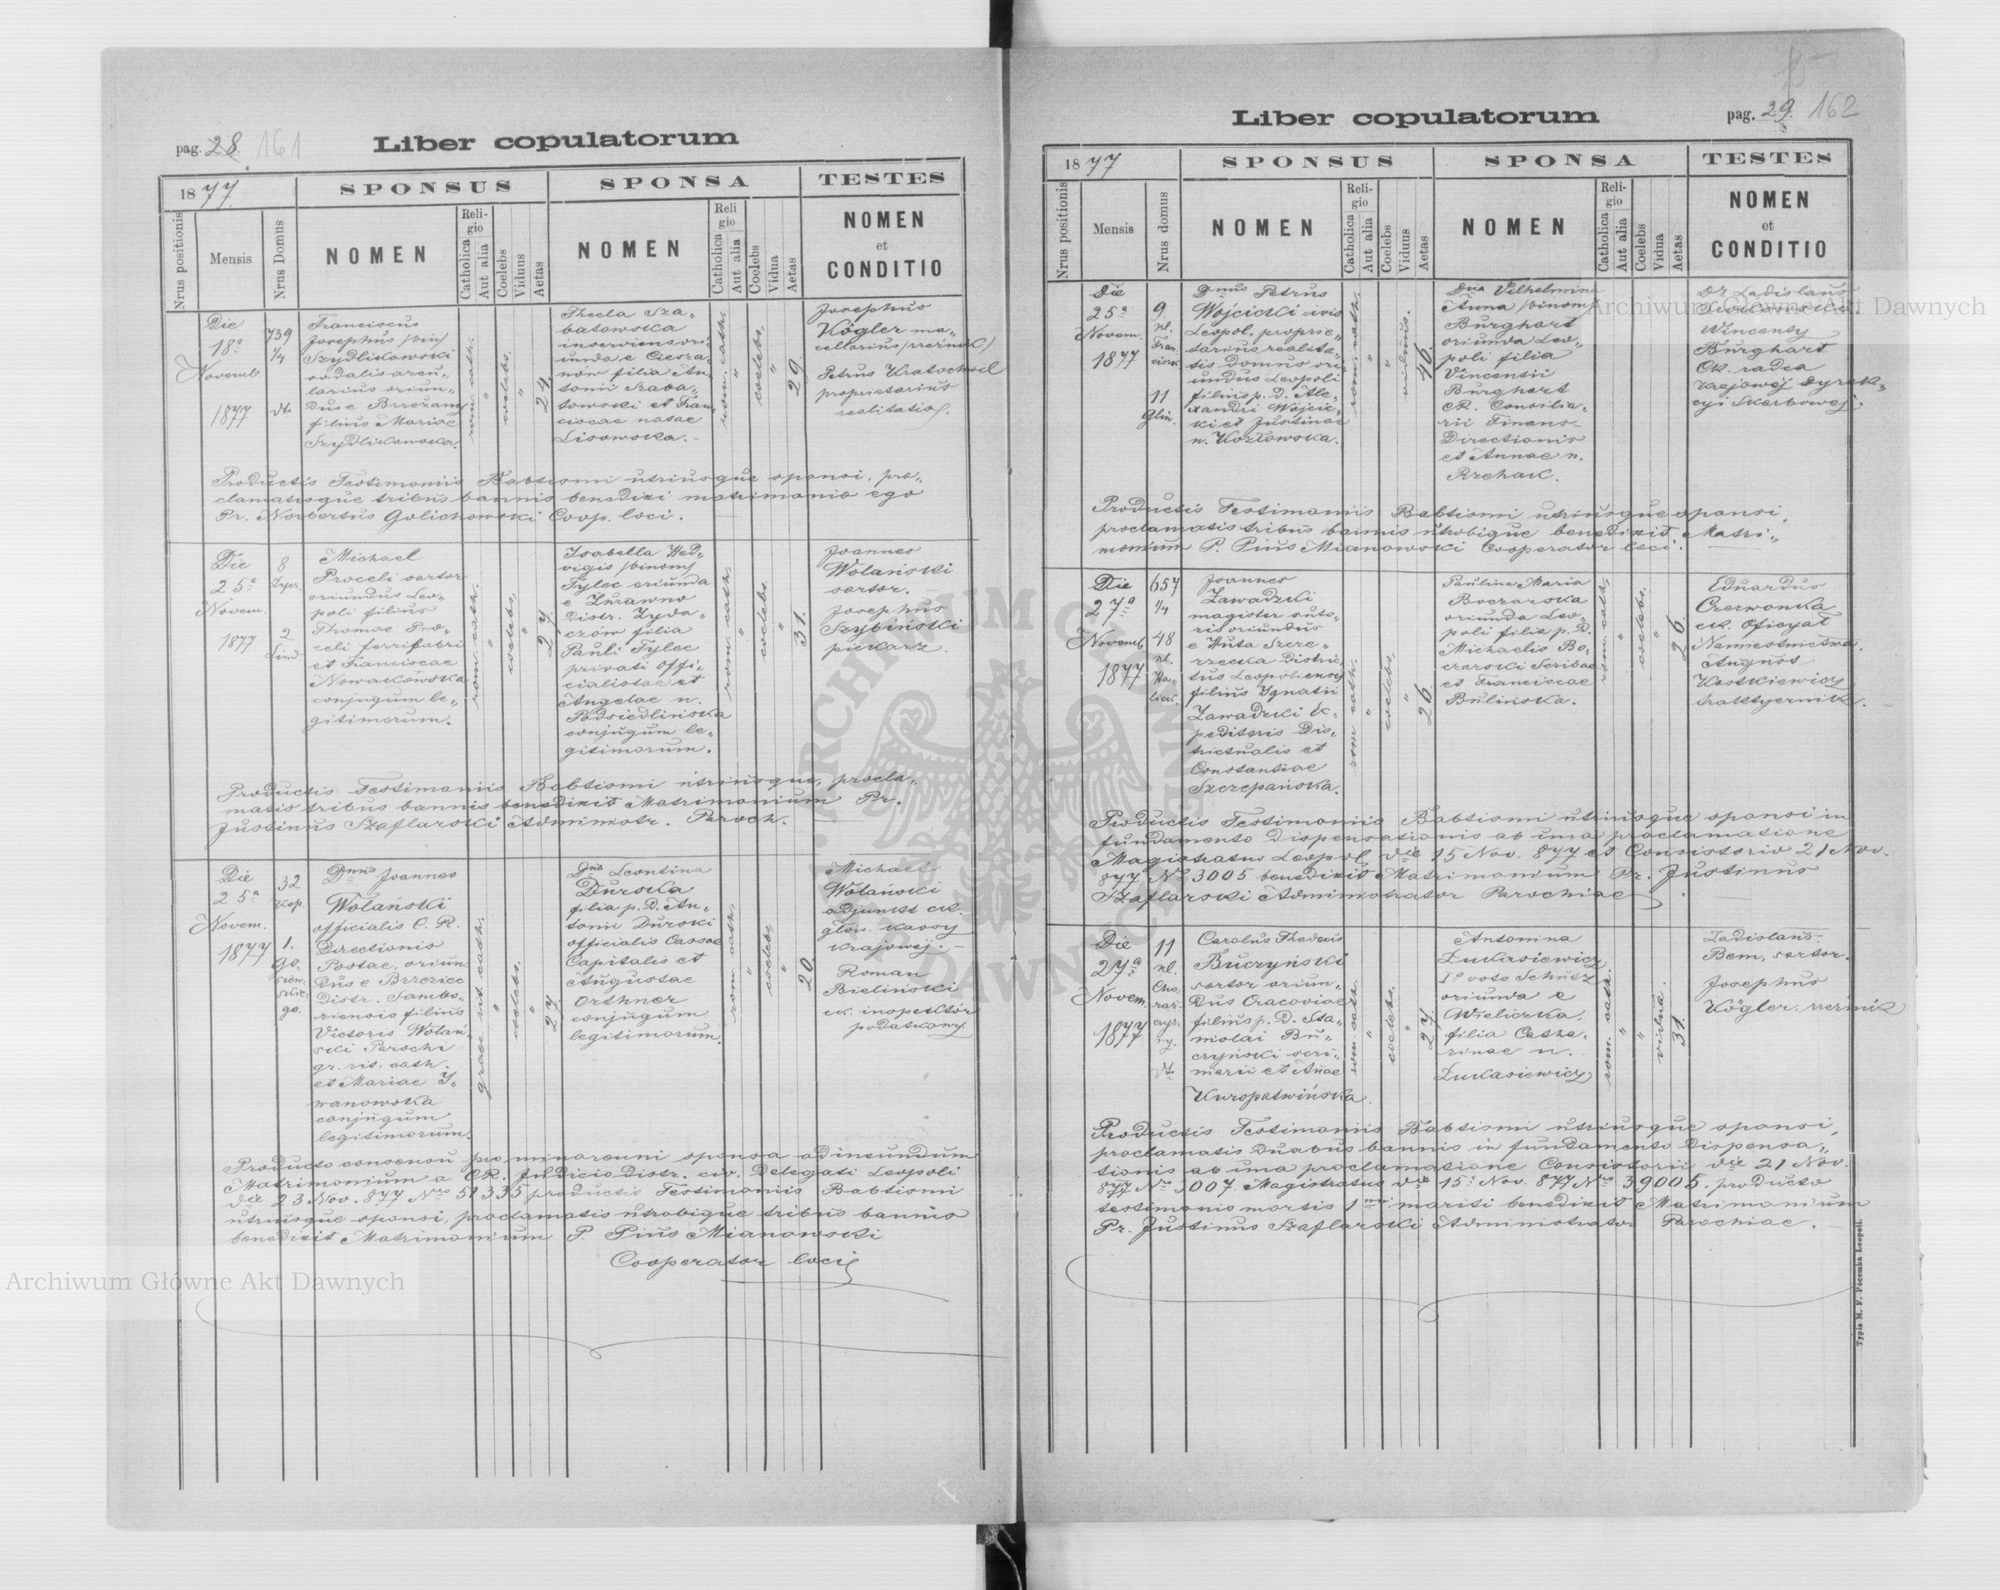 pag. 28. 161
Liber copulatorum
1877.
SPONSUS
SPONSA
TESTES
Nrus positionis
Mensis
Nrus Domus
NOMEN
Religio
Catholica
Aut alia
Coelebs
Viduus
Aetas
NOMEN
Religio
Catholica
Aut alia
Coelebs
Vidua
Aetas
NOMEN
et
CONDITIO
Die
18a
Novemb.
1877
739
1/4
Franciscus
Josephus /bin/
Szydlikowski
sodalis arcu-
larius oriun-
dus e Brzeżany
filius Mariae
Szydlikowska.
rom. cath.
coelebs.
24.
Thecla Sza-
batowska
inserviens ori-
unda e Ciesza-
nów filia An-
tonii Szaba-
towski et Fran-
ciscae natae
Lisowska.
rom. cath.
coelebs.
29.
Josephus
Kögler ma-
cellarius /rzeźnik/
Petrus Kratochwil
proprietarius
realitatis.
Productis Testimoniis Babtismi utriusque sponsi, pro-
clamatisque tribus bannis benedixi matrimonio ego
Pr. Norbertus Golichowski Coop. loci.
Die
25a
Novem.
1877
8
2
Michael
Proceli sartor
oriundus Leo-
poli filius
Thomae Pro-
celi ferrifabri
et Franciscae
Nowakowska
conjugum le-
gitimorum.
rom. cath.
coelebs.
27.
Isabella Hed-
vigis /binom/
Tylec oriunda
e Żurawno
Distr. Żyda-
czów filia
Pauli Tylec
privati offi-
cialistae et
Angelae n.
Podsiedlińska
conjugum le-
gitimorum.
rom. cath.
coelebs.
31.
Joannes
Wolański
sartor.
Josephus
Szybiński
piekarz.
Productis Testimoniis Babtismi utriusque, procla-
matis tribus bannis benedixit Matrimonium Pr.
Justinus Szaflarski Administr. Paroch.
Die
25a
Novem.
1877
32
Kop.
1.
Dnus Joannes
Wolański
officialis C. R.
Directionis
Postae, oriun-
dus e Brzeziec
Distr. Sambo-
riensis filius
Victoris Wolań-
ski Parochi
gr. rit. cath.
et Mariae I-
wanowska
conjugum
legitimorum.
graec. rit. cath.
coelebs.
27.
Dna Leontina
Durska
filia p. D. An-
tonii Durski
officialis Cassae
Capitalis et
Augustae
Orthner
conjugum
legitimorum.
rom. cath.
coelebs.
20.
Michael
Wolański
adjunkt ck.
głów. Kassy
Krajowej.
Roman
Bieliński
ck. inspektor
podatkowy.
Producto consensu pro minorenni sponsa ad ineundum
Matrimonium a CR. Judicio Distr. civ. Delegati Leopoli
die 23 Nov. 877 Nro 51335 productis Testimoniis Babtismi
utriusque sponsi, proclamatis utrobique tribus bannis
benedixit Matrimonium P. Pius Mianowski
Cooperator loci
Liber copulatorum
pag. 29. 162
1877
SPONSUS
SPONSA
TESTES
Nrus positionis
Mensis
Nrus domus
NOMEN
Religio
Catholica
Aut alia
Coelebs
Viduus
Aetas
NOMEN
Religio
Catholica
Aut alia
Coelebs
Vidua
Aetas
NOMEN
et
CONDITIO
Die
25a
Novem.
1877
9.
ul.
Fran-
cisk.
11
Glin.
Dnus Petrus
Wojcicki civis
Leopol. proprie-
tarius realita-
tis domus ori-
undus Leopoli
filius p. D. Ale-
xandri Wojcic-
ki et Justinae
n. Kozłowska.
rom. cath.
viduus.
46.
Dna Vilhelmina
Anna /binom/
Burghart
oriunda Leo-
poli filia
Vincentii
Burghart
CR. Consilia-
rii Finans-
Directionis
et Annae n.
Rzehak.
Dr. Ladislaus
Wincenty
Burghart
CK. radca
Krajowej Dyrek-
cyi Skarbowej.
Productis Testimoniis Babtismi utriusque sponsi,
proclamatis tribus bannis utrobique benedixit Matri-
monium P. Pius Mianowski Cooperator loci.
Die
27a
Novemb.
1877
657
1/4
48
ul.
Joannes
Zawadzki
magister suto-
ris oriundus
e Huta Szcze-
rzecka Distric-
tus Leopoliensis
filius Ignatii
Zawadzki Ex-
peditoris Dis-
trictualis et
Constantiae
Szczepańska.
rom. cath.
coelebs.
26.
Paulina Maria
Boczarska
oriunda Leo-
poli filia p. D.
Michaelis Bo-
czarski Scribae
et Franciscae
Bulińska.
rom. cath.
coelebs.
26.
Eduardus
Czerwonka
ck. Oficyał
Namiestnictwa.
August
Kostkiewicz
traktyernik.
Productis Testimoniis Babtismi utriusque sponsi in
fundamento Dispensationis ab una proclamatione
Magistratus Leopol. die 15 Nov. 877 et Consistorio 21 Nov.
877 No 3005 benedixit Matrimonium Pr. Justinus
Szaflarski Administrator Parochiae.
Die
27a
Novem.
1877
11
ul.
Carolus Thadeus
Buczyński
sartor oriun-
dus Cracoviae
filius p. D. Sta-
nislai Bu-
czyński scri-
niarii et Annae
Kuropatwińska.
rom. cath.
coelebs.
27.
Antonina
Łukasiewicz
1o voto Schütz
oriunda e
Wieliczka,
filia Catha-
rinae n.
Łukasiewicz
rom. cath.
vidua.
31.
Ladislaus
Bem, sartor.
Josephus
Kögler, rzeźnik
Productis Testimoniis Babtismi utriusque sponsi,
proclamatis duabus bannis in fundamento dispensa-
tionis ab una proclamatione Consistorii die 21 Nov.
877 No 3007. Magistratus die 15. Nov. 877 Nro 39005. producto
testimonio mortis 1mi mariti benedixit Matrimonium
Pr. Justinus Szaflarski Administrator Parochiae.
Typis M. F. Poremba Leopoli.
Archiwum Główne Akt Dawnych
Archiwum Główne Akt Dawnych
ARCHIWUM GŁÓWNE AKT DAWNYCH